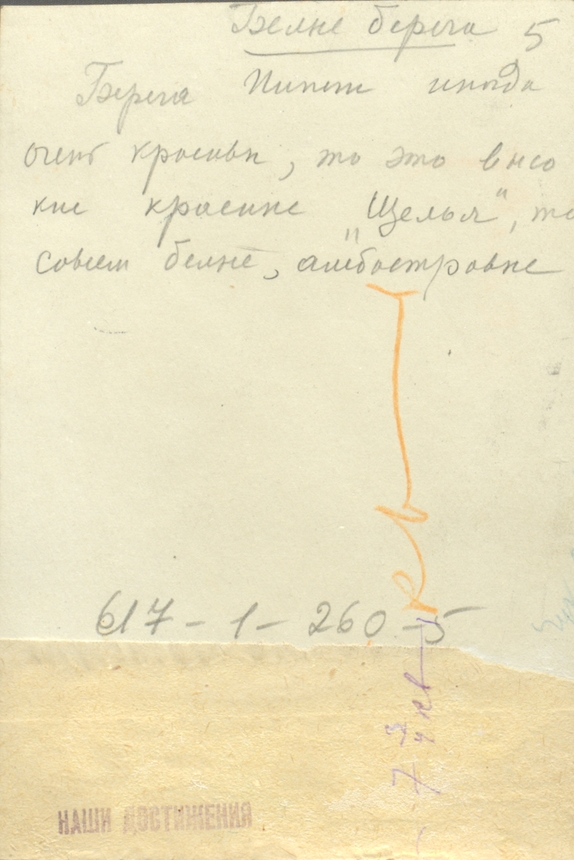 Белые берега 5
Берега Пинеги иногда
очень красивы, то это высо
кие красные „Щелья“, то
совсем белые, алебостровые
617-1-260-5
7 3/4 кв
НАШИ ДОСТИЖЕНИЯ